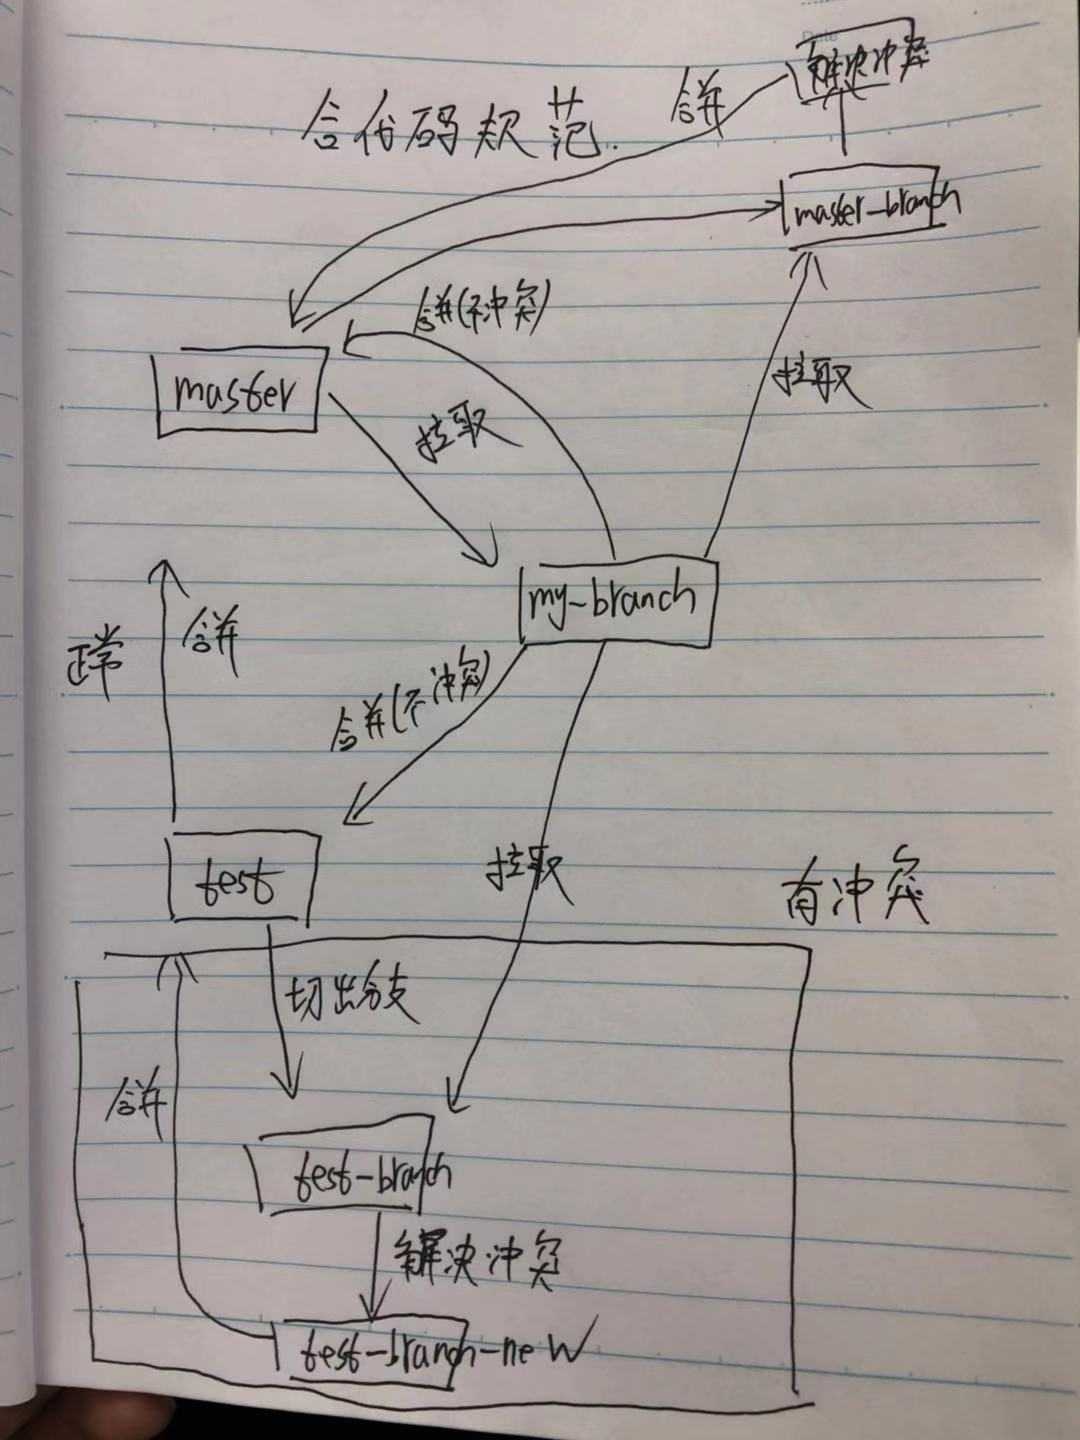 Date
解决冲突
合并
合代码规范.
master-branch
合并(不冲突)
拉取
master
拉取
my-branch
正常
合并
合并(不冲突)
test
拉取
有冲突
切出分支
合并
test-branch
解决冲突
test-branch-new